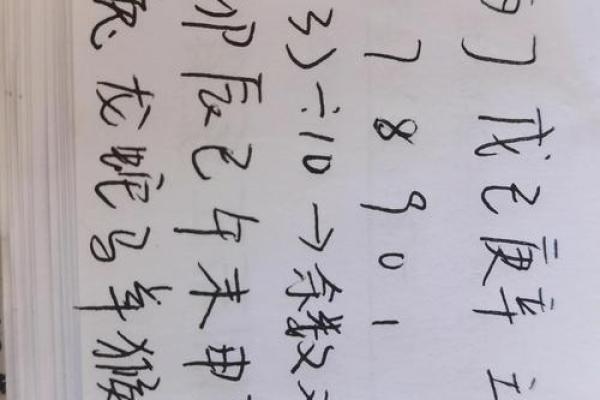 丁 戊 己 庚 辛
7 8 9 0 1
3) ÷10 → 余数
卯 辰 巳 午 未 申
龙 蛇 马 羊 猴